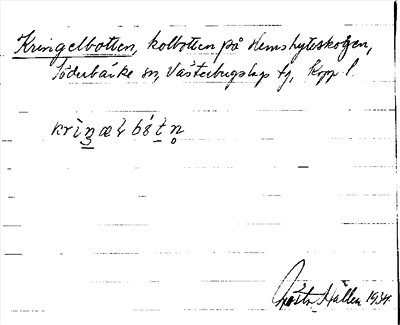 Kringelbotten, kolbotten på Hemshytteskogen,
Söderbärke sn, Västerbergslags tg, Kopp l.
krìŋæl bót n̥
Gösta Hållen 1934.